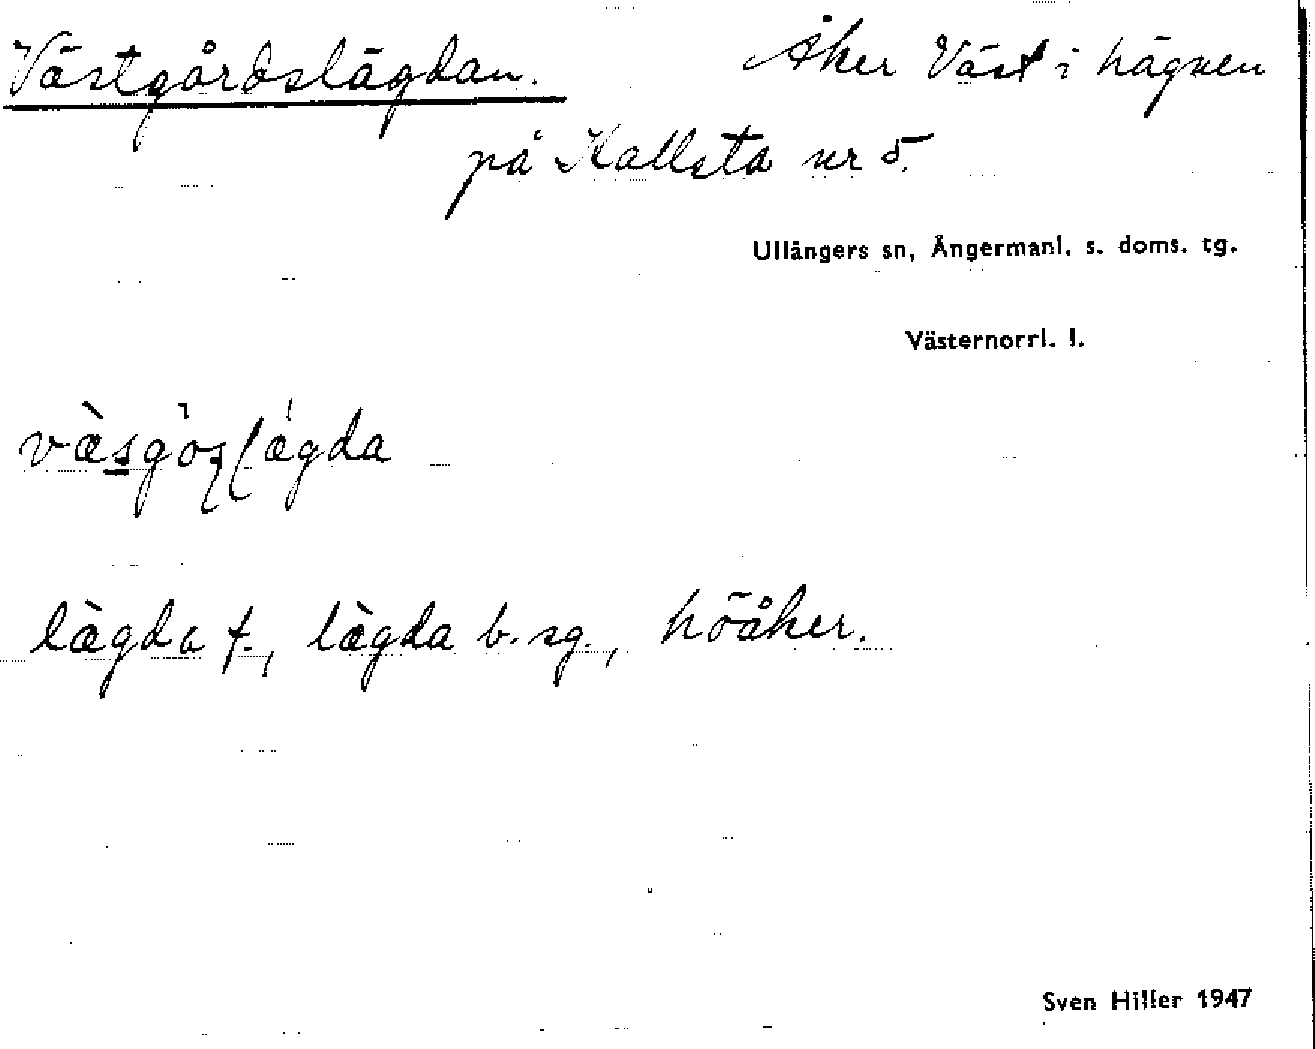 Västgårdslägdan. Åker Väst i hägnen
på Kallsta nr 5.
Ullångers sn, Ångermanl. s. doms. tg.
Västernorrl. l.
lægda f., lægda b. sg., höåker.
Sven Hiller 1947